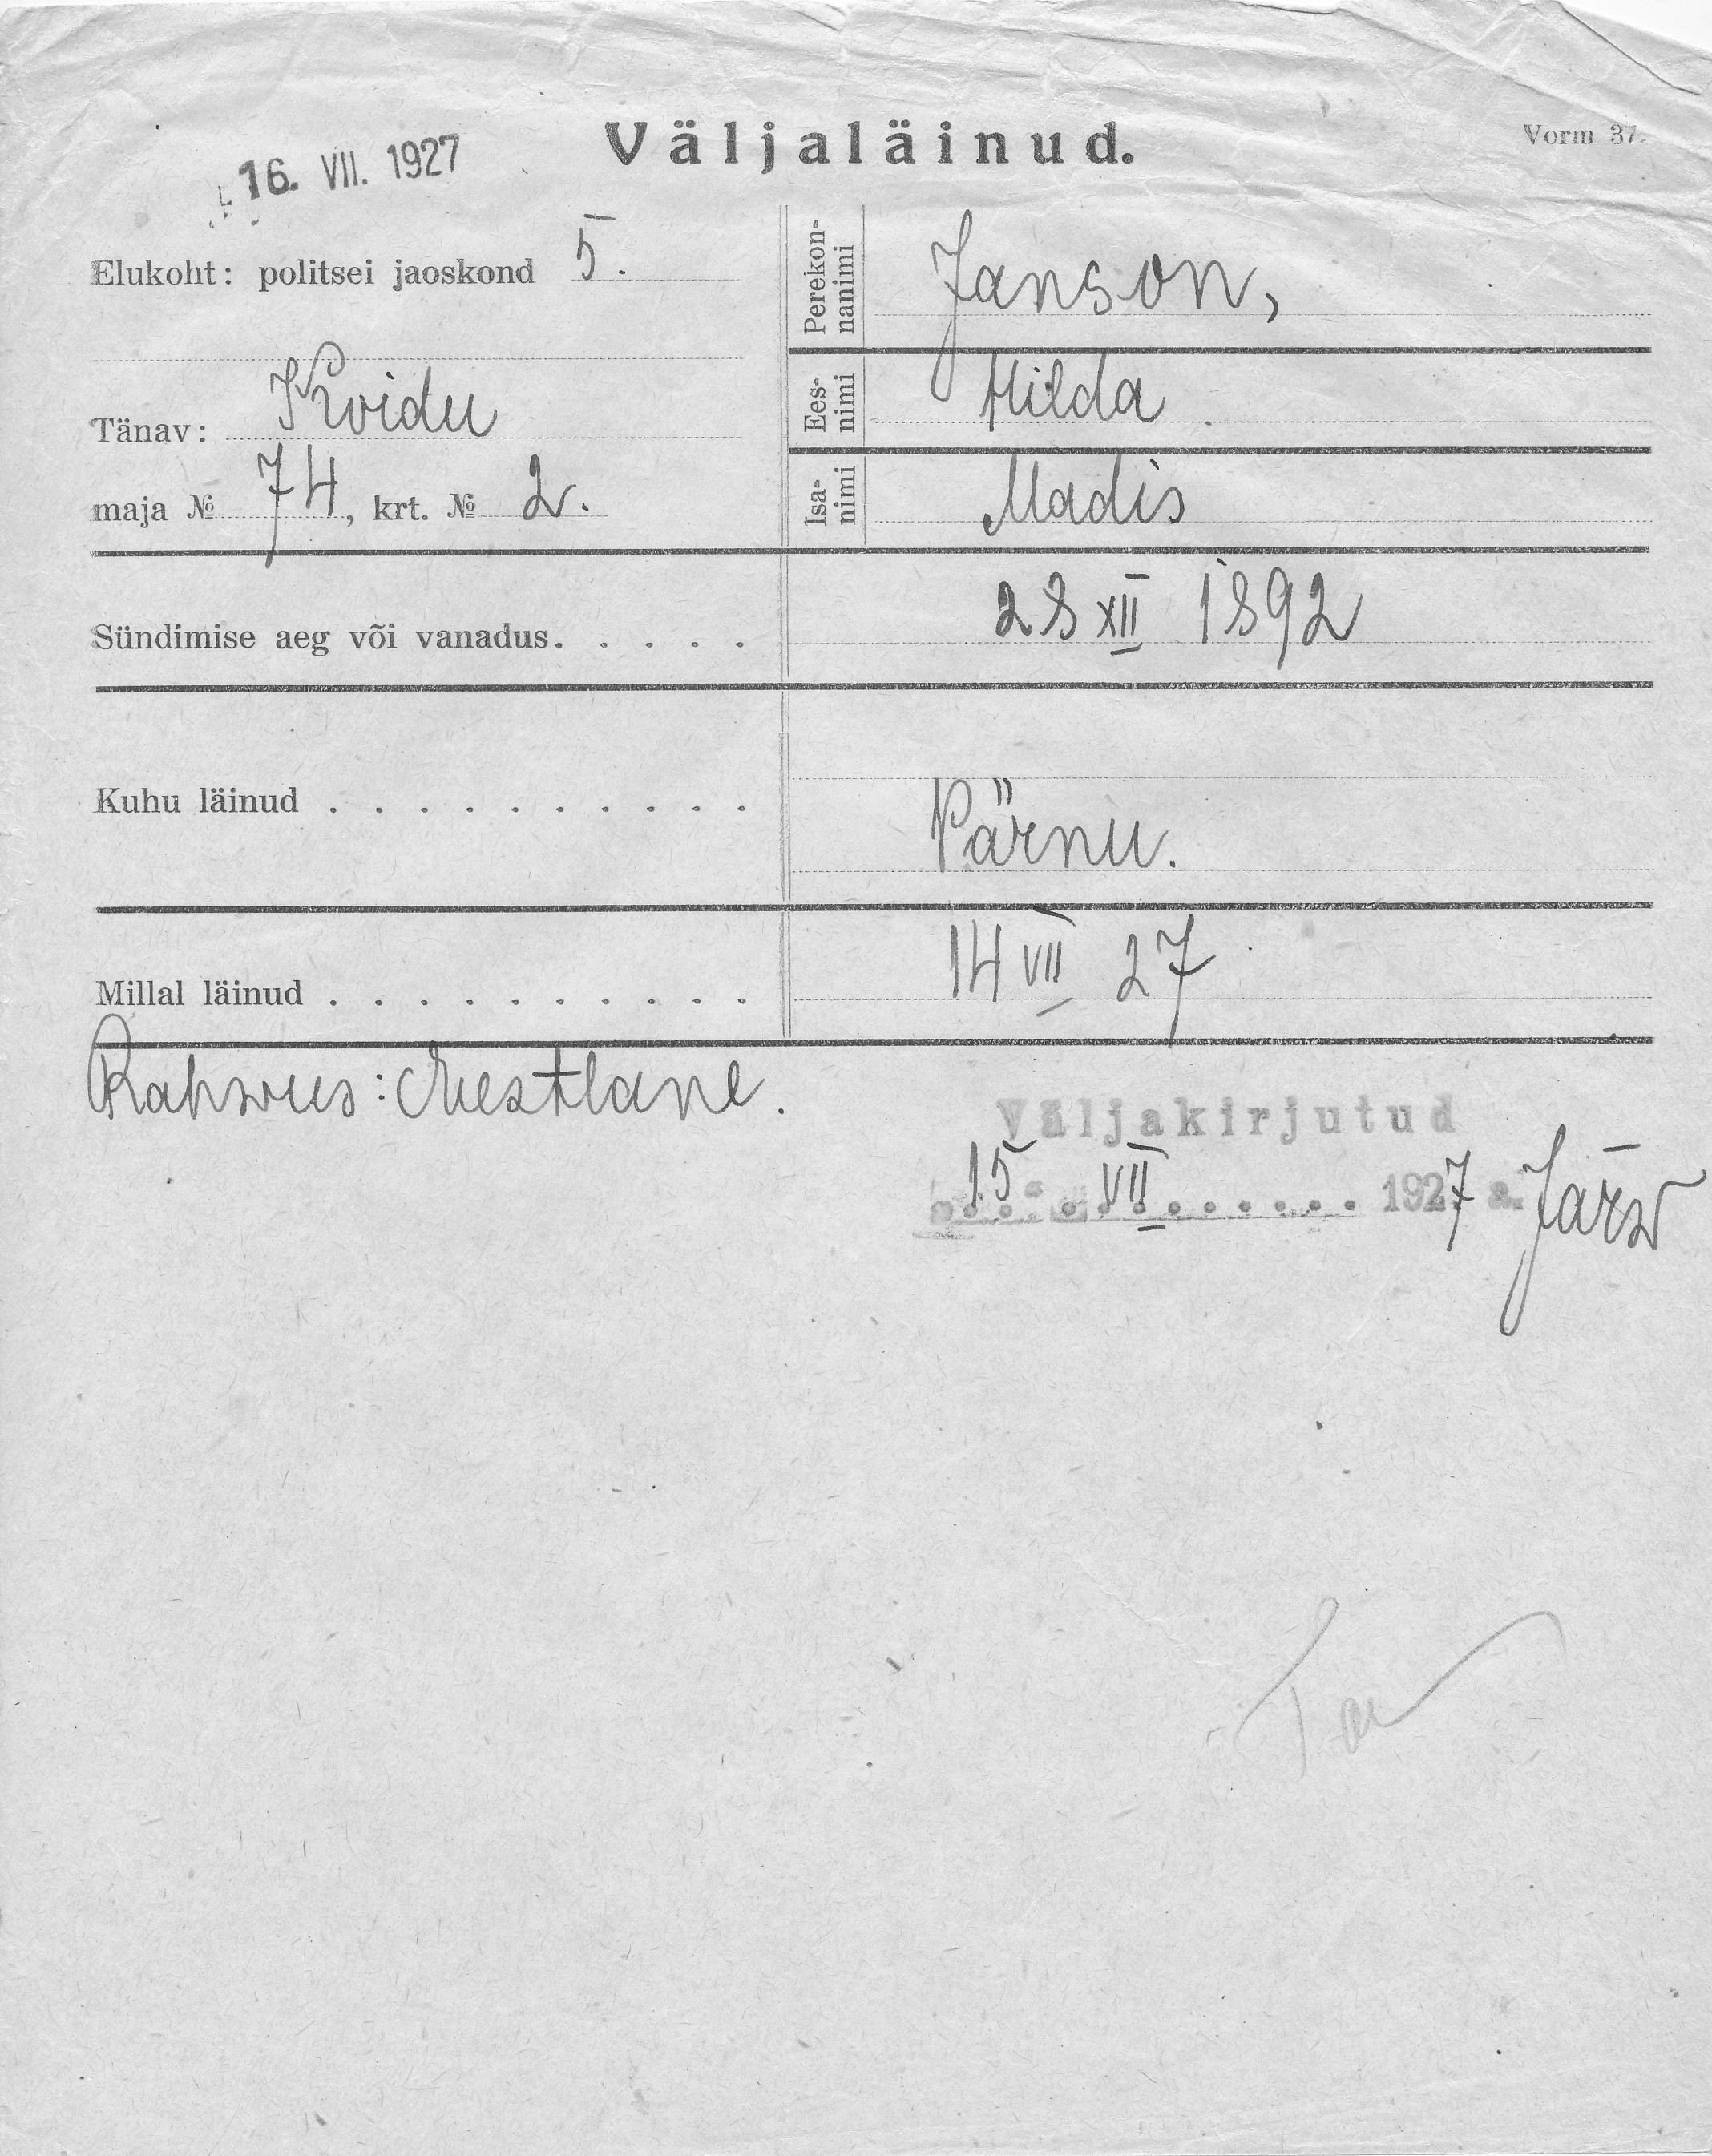 Väljaläinud.
Vorm 37.
16. VII. 1927
Elukoht: politsei jaoskond 5.
Tänav: Koidu
maja № 74, krt. № 2.
Perekon-
nanimi
Janson,
Ees-
nimi
Hilda
Isa-
nimi
Madis
Sündimise aeg või vanadus. . . . . 28 XII 1892
Kuhu läinud . . . . . . . . . . Pärnu.
Millal läinud . . . . . . . . . . 14 VII 27
Rahwus: Eestlane.
Väljakirjutud
15. VII 1927 a. Järw